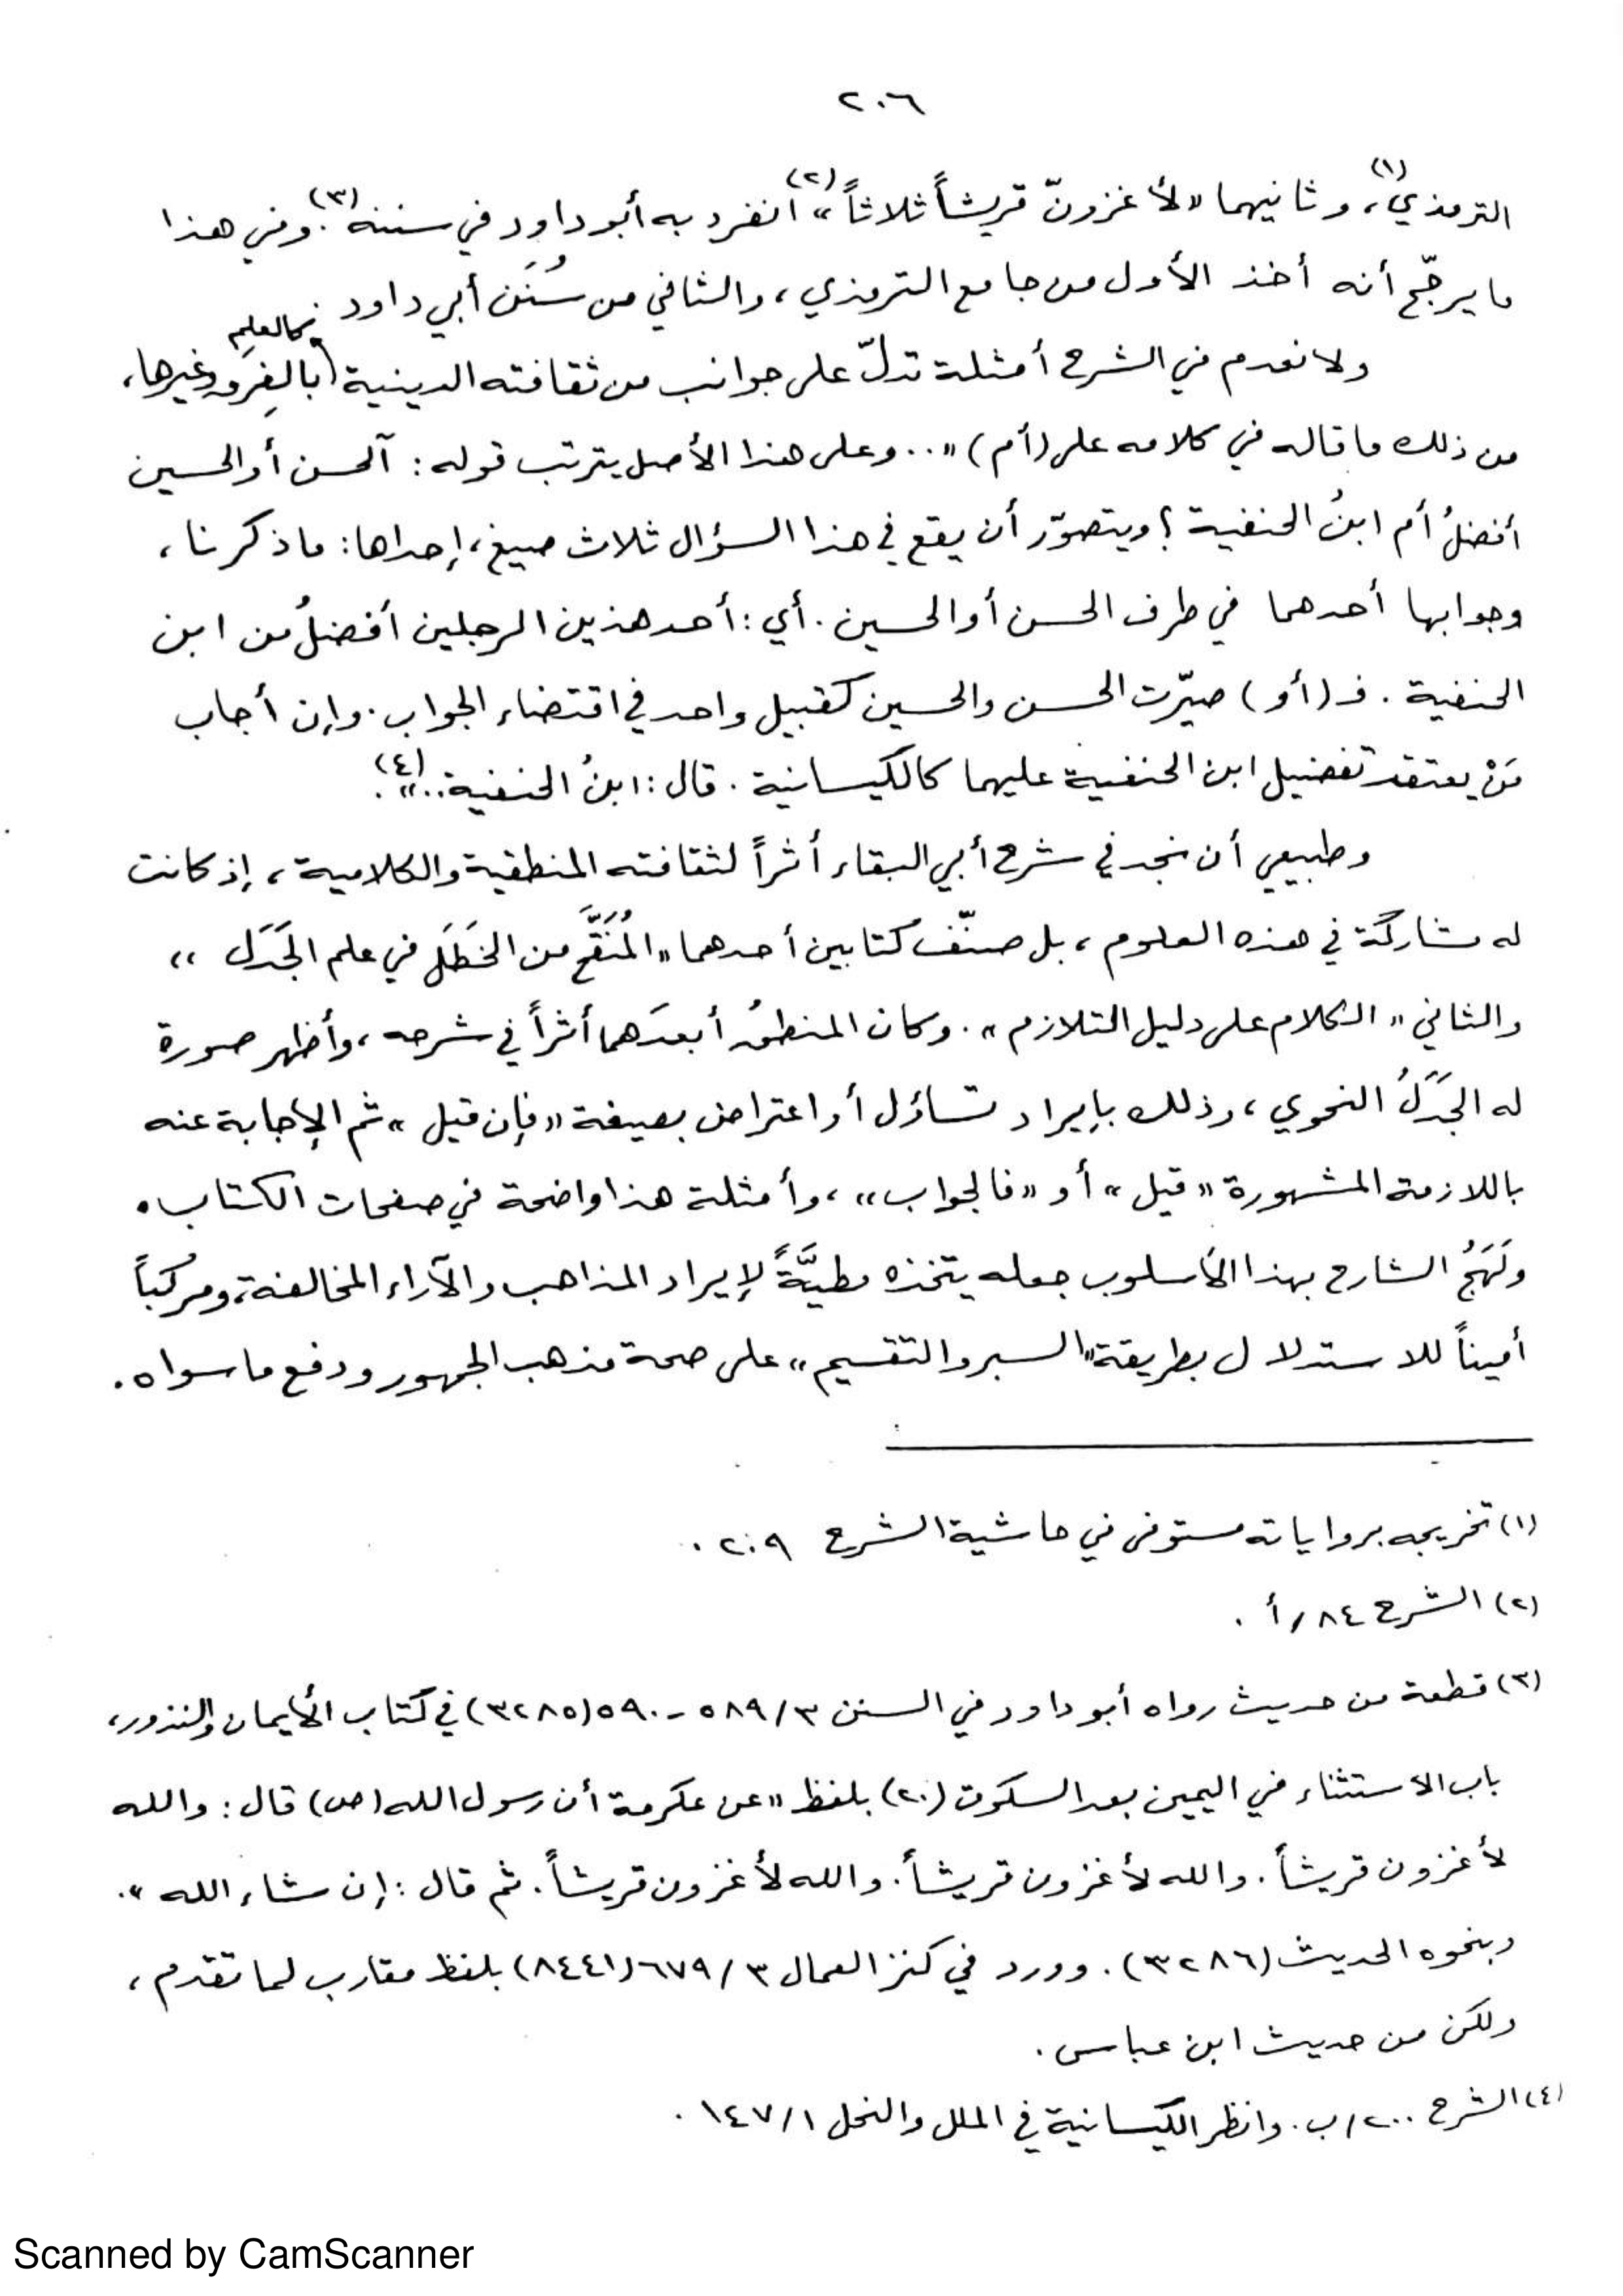 ٢٠٦
الترمذي(١)، وثانيهما «لأغزونّ قريشاً ثلاثاً»(٢) انفرد به أبو داود في سننه(٣). وفي هذا
ما يرجّح أنه أخذ الأول من جامع الترمذي، والثاني من سُنَن أبي داود
ولا نعدم في الشرح أمثلة تدلّ على جوانب من ثقافته الدينية كالعلم بالفِرَق وغيرها،
من ذلك ما قاله في كلامه على (أم) «.. وعلى هذا الأصل يترتب قوله: آلحسن أو الحسين
أفضلُ أم ابنُ الحنفية؟ ويتصوّر أن يقع في هذا السؤال ثلاث صيغ، إحداها: ما ذكرنا،
وجوابها أحدهما في طرف الحسن أو الحسين. أي: أحد هذين الرجلين أفضلُ من ابن
الحنفية. فـ (أو) صيّرت الحسن والحسين كقبيل واحد في اقتضاء الجواب. وإن أجاب
مَنْ يعتقد تفضيل ابن الحنفية عليهما كالكيسانية. قال: ابنُ الحنفية..»(٤).
وطبيعي أن نجد في شرح أبي البقاء أثراً لثقافته المنطقية والكلامية، إذ كانت
له مشاركة في هذه العلوم، بل صنّف كتابين أحدهما «المُنَقَّح من الخَطَل في علم الجَدَل»
والثاني «الكلام على دليل التلازم». وكان المنطقُ أبعدَهما أثراً في شرحه، وأظهر صورة
له الجَدَلُ النحوي، وذلك بإيراد تساؤل أو اعتراض بصيغة «فإن قيل» ثم الإجابة عنه
باللازمة المشهورة «قيل» أو «فالجواب»، وأمثلة هذا واضحة في صفحات الكتاب.
ولَهَجُ الشارح بهذا الأسلوب جعله يتخذه مطيَّةً لإيراد المذاهب والآراء المخالفة، ومركباً
أميناً للاستدلال بطريقة «السبر والتقسيم» على صحة مذهب الجمهور ودفع ما سواه.
(١) تخريجه برواياته مستوفى في حاشية الشرح ٢٠٩.
(٢) الشرح ٨٤/أ.
(٣) قطعة من حديث رواه أبو داود في السنن ٣/٥٨٩-٥٩٠ (٣٢٨٥) في كتاب الأيمان والنذور،
باب الاستثناء في اليمين بعد السكوت (٢٠) بلفظ «عن عكرمة أن رسول الله (ص) قال: والله
لأغزون قريشاً. والله لأغزون قريشاً. والله لأغزون قريشاً. ثم قال: إن شاء الله».
وبنحوه الحديث (٣٢٨٦). وورد في كنز العمال ٣/٦٧٩ (٨٤٤١) بلفظ مقارب لما تقدم،
ولكن من حديث ابن عباس.
(٤) الشرح ٢٠٠/ب. وانظر الكيسانية في الملل والنحل ١/١٤٧.
Scanned by CamScanner